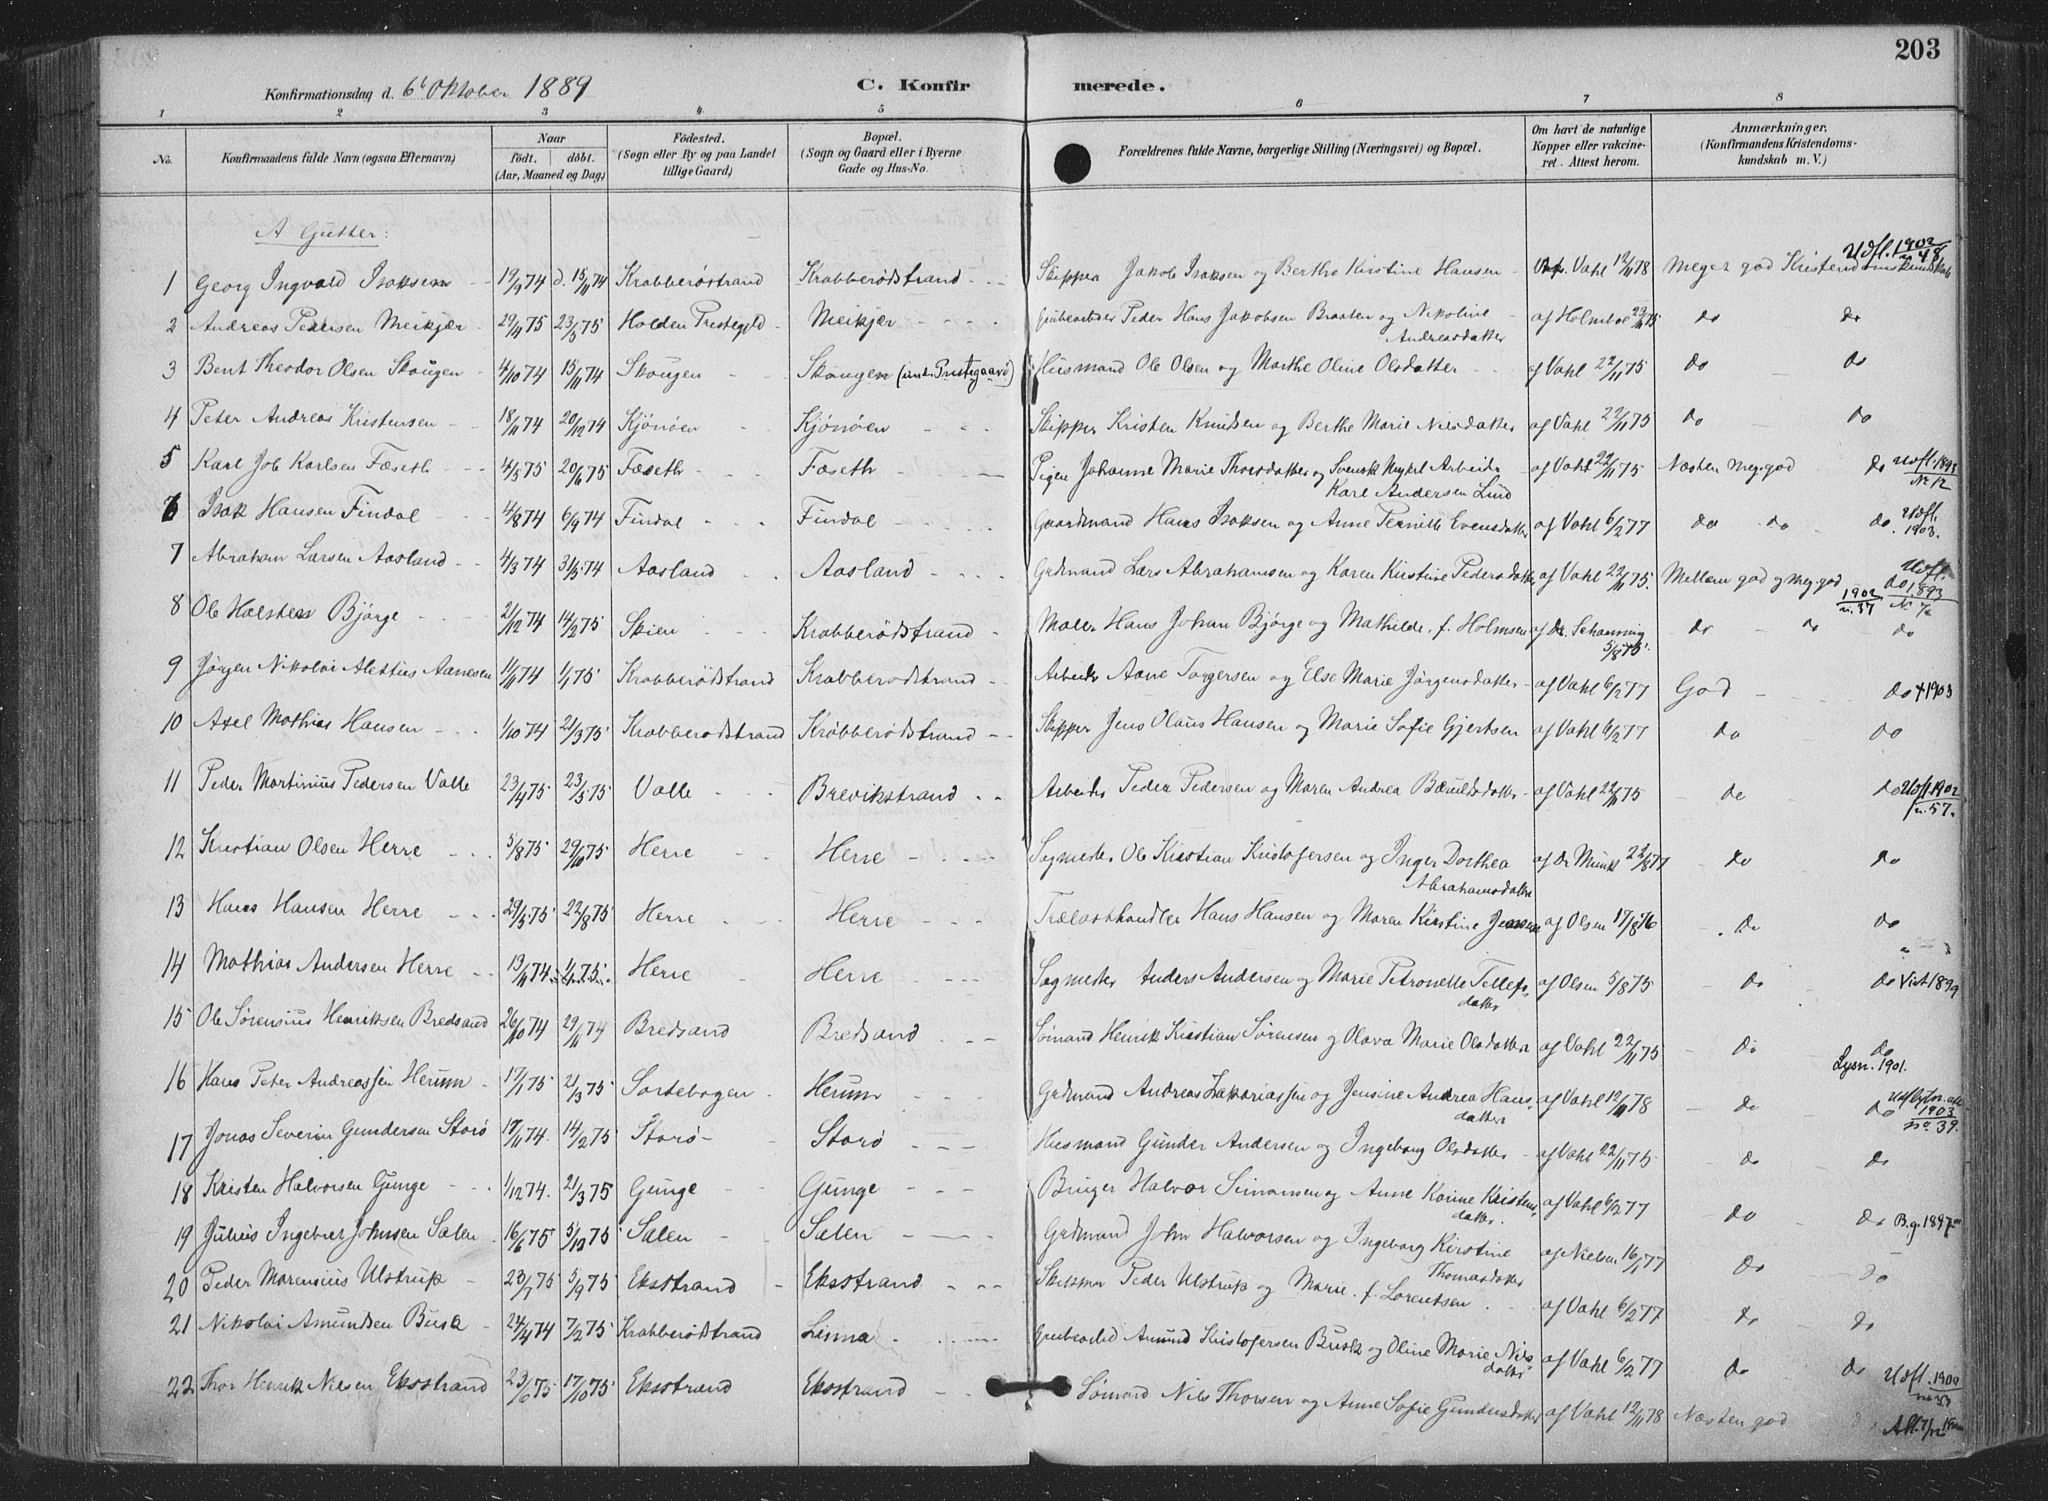 203
Konfirmationsdag d. 6t Oktober 1889 C. Konfirmerede.
1 2 3 4 5 6 7 8
No. Konfirmandens fulde Navn (ogsaa Efternavn) Naar født, døbt. (Aar, Maaned og Dag) Fødested. (Sogn eller By og paa Landet tillige Gaard) Bopæl. (Sogn og Gaard eller i Byerne Gade og Hus-No. Forældrenes fulde Navne, borgerlige Stilling (Næringsvei) og Bopæl. Om havt de naturlige Kopper eller vakcineret. Attest herom. Anmærkninger. (Konfirmandens Kristendomskundskab m. V.)
A Gutter:
1 Georg Ingvald Isaksen 19/9 74 d. 15/11 74 Krabberøstrand Krabberødstrand Skipper Jakob Isaksen og Berthe Kirstine Hansen Vahl 12/11 78 Meget god Kristendomskundskab Udfl. 1902 48
2 Andreas Pedersen Meikjær 29/11 75 23/5 75 Holden Prestegjeld Meikjær Grubearbeider Peder Hans Jakobsen Braaten og Nikoline Andreasdatter af Holmboe 23/11 75 do do
3 Bent Theodor Olsen Skougen 4/10 74 15/11 74 Skougen Skougen (under Prestegaard) Husmand Ole Olsen og Marthe Oline Olsdatter af Vahl 22/11 75 do do
4 Peter Andreas Kristensen 18/11 74 20/12 74 Kjønøen Kjønøen Skipper Kristen Knudsen og Berthe Marie Nilsdatter af Vahl 22/11 75 do do
5 Karl Job Karlsen Fæseth 4/5 75 20/6 75 Fæseth Fæseth Pigen Johanne Marie Thorsdatter og Svensk Arbeider Karl Andersen Lind af Vahl 22/11 75 Næsten meg. god do Udfl. 1893 No 12
6 Isak Hansen Findal 4/8 74 6/9 74 Findal Findal Gaardmand Hans Isaksen og Anne Pernille Evensdatter af Vahl 6/2 77 do do do Udfl. 1903.
7 Abraham Larsen Aasland 4/3 74 31/5 74 Aasland Aasland Grdmand Lars Abrahamsen og Karen Kirstine Pedersdatter af Vahl 22/11 75. Mellem god og meg. god do Udfl. 1893
8 Ole Halsten Bjørge 21/12 74 14/2 75 Skien Krabberødstrand Maler Hans Johan Bjørge og Mathilde f. Holmsen af Dr. Schanning 5/8 75. do do do 1902 n. 37
9 Jørgen Nikolai Alettius Aanesen 1/11 74 1/1 75 Krabberødstrand Krabberødstrand Arbeider Aane Torgersen og Else Marie Jørgensdatter af Vahl 6/2 77 God do + 1903
10 Axel Mathias Hansen 1/10 74 21/3 75 Krabberødstrand Krabberødstrand Skipper Jens Olaus Hansen og Marie Sofie Gjertsen af Vahl 6/2 77 do do
11 Peder Martinius Pedersen Valle 23/4 75 23/5 75 Valle Brevikstrand Arbeider Peder Pedersen og Maren Andrea Bærulvsdatter af Vahl 22/11 75 do do Udfl. 1902 n. 57.
12 Kristian Olsen Herre 5/8 75 29/10 75 Herre Herre Sagmester Ole Kristian Kristofersen og Inger Dorthea Abrahamsdatter af Dr Munk 22/8 77 do do
13 Hans Hansen Herre 29/5 75 22/8 75 Herre Herre Trælasthandler Hans Hansen og Maren Kirstine Jensen af Olsen 17/8 76 do do
14 Mathias Andersen Herre 13/11 74 1/1 75 Herre Herre Sagmester Anders Andersen og Marie Petronelle Tellefsdatter af Olsen 5/8 75 do do Viet 1899
15 Ole Sørensius Henriksen Bredsand 26/10 74 29/11 74 Bredsand Bredsand Sømand Henrik Kristian Sørensen og Olava Marie Olsdatter af Vahl 22/11 75 do do Lysn. 1901.
16 Hans Peter Andreassen Herum 17/1 75 21/3 75 Sortebogen Herum Grdmand Andreas Zakariassen og Jensine Andrea Hansdatter af Vahl 12/11 78 do do Udflytn. att. 1903 no 39.
17 Jonas Severin Gundersen Storø 17/11 74. 14/2 75 Storø Storø Husmand Gunder Andersen og Ingeborg Olsdatter af Vahl 22/11 75 do do
18 Kristen Halvorsen Gunge 1/12 74. 21/3 75 Gunge Gunge Bruger Halvor Simonsen og Anne Karine Kristensdatter. af Vahl 6/2 77 do do B.g. 1897
19 Julius Ingebret Johnsen Salen 16/6 75 5/12 75 Salen Salen Grdmand John Halvorsen og Ingeborg Kirstine Thomasdatter af Nielsen 16/1 77 do do
20 Peder Marensius Ulstrup 23/7 75 5/9 75 Eksstrand Eksstrand Peder Ulstrup og Marie f. Lorentsen af Vahl 6/2 77 do do
21 Nikolai Amundsen Busk 24/4 74 7/2 75 Krabberødstrand Linna Grubearbeid Amund Kristofersen Busk og Oline Marie Nilsdatter af Vahl 6/2 77 do do Udfl. 1900
22 Thor Henrik Nilsen Eksstrand 23/6 75 17/10 75 Eksstrand Eksstrand Sømand Nils Thorsen og Anne Sofie Gundersdatter af Vahl 12/11 78 Næsten god